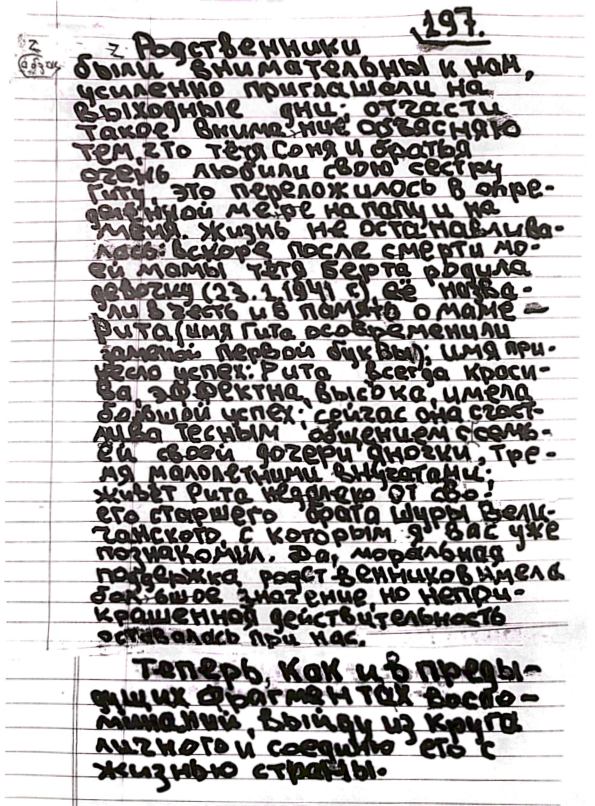 197.
z
(абзац)
z Родственники
были внимательны к нам,
усиленно приглашали на
выходные дни; отчасти
такое внимание объясняю
тем, что тётя Соня и братья
очень любили свою сестру
Гиту, это переложилось в опре-
делённой мере на папу и на
меня. Жизнь не останавлива-
лась: вскоре после смерти мо-
ей мамы тётя Берта родила
девочку (23.1.1941 г.) её назва-
ли в честь и в память о маме –
Рита (имя Гита осовременили
заменой первой буквы); имя при-
несло успех: Рита всегда краси-
ва, эффектна, высока, имела
большой успех; сейчас она счаст-
лива тесным общением с семь-
ёй своей дочери Яночки, тре-
мя малолетними внучатами;
живёт Рита недалеко от сво-
его старшего брата Шуры Вели-
чанского, с которым я вас уже
познакомил. Да, моральная
поддержка родственников имела
большое значение, но непри-
крашенная действительность
оставалась при нас.
Теперь, как и в преды-
дущих фрагментах воспо-
минаний, выйду из круга
личного и соединю его с
жизнью страны.